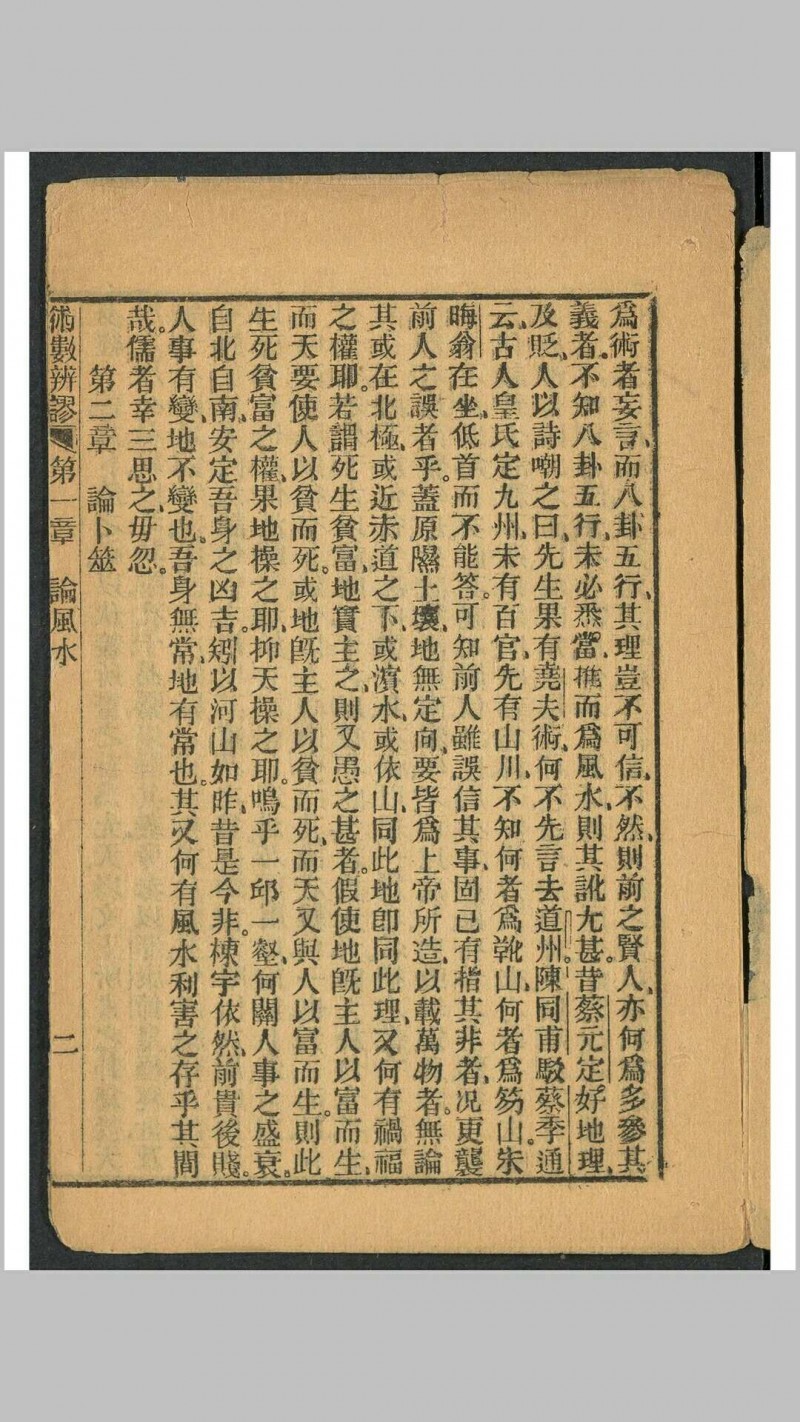 爲術者妄言、而八卦五行、其理豈不可信、不然、則前之賢人、亦何爲多參其
義者。不知八卦五行、未必悉當、推而爲風水、則其訛尢甚。昔蔡元定好地理、
及貶、人以詩嘲之曰、先生果有堯夫術、何不先言去道州。陳同甫駁蔡季通
云、古人皇氏定九州、未有百官、先有山川、不知何者爲靴山、何者爲笏山、朱
晦翁在坐、低首而不能答。可知前人雖誤信其事、固已有指其非者、况更襲
前人之誤者乎。蓋原隰土壤、地無定向、要皆爲上帝所造、以載萬物者。無論
其或在北極、或近赤道之下、或濱水、或依山、同此地卽同此理、又何有禍福
之權耶。若謂死生貧富、地實主之、則又愚之甚者。假使地旣主人以富而生、
而天要使人以貧而死。或地旣主人以貧而死、而天又與人以富而生。則此
生死貧富之權、果地操之耶、抑天操之耶。嗚乎一邱一壑、何關人事之盛衰。
自北自南、安定吾身之凶吉。矧以河山如昨、昔是今非。棟宇依然、前貴後賤。
人事有變、地不變也。吾身無常、地有常也。其又何有風水利害之存乎其間
哉。儒者幸三思之、毋忽。
第二章 論卜筮
術數辨謬 第一章 論風水 二